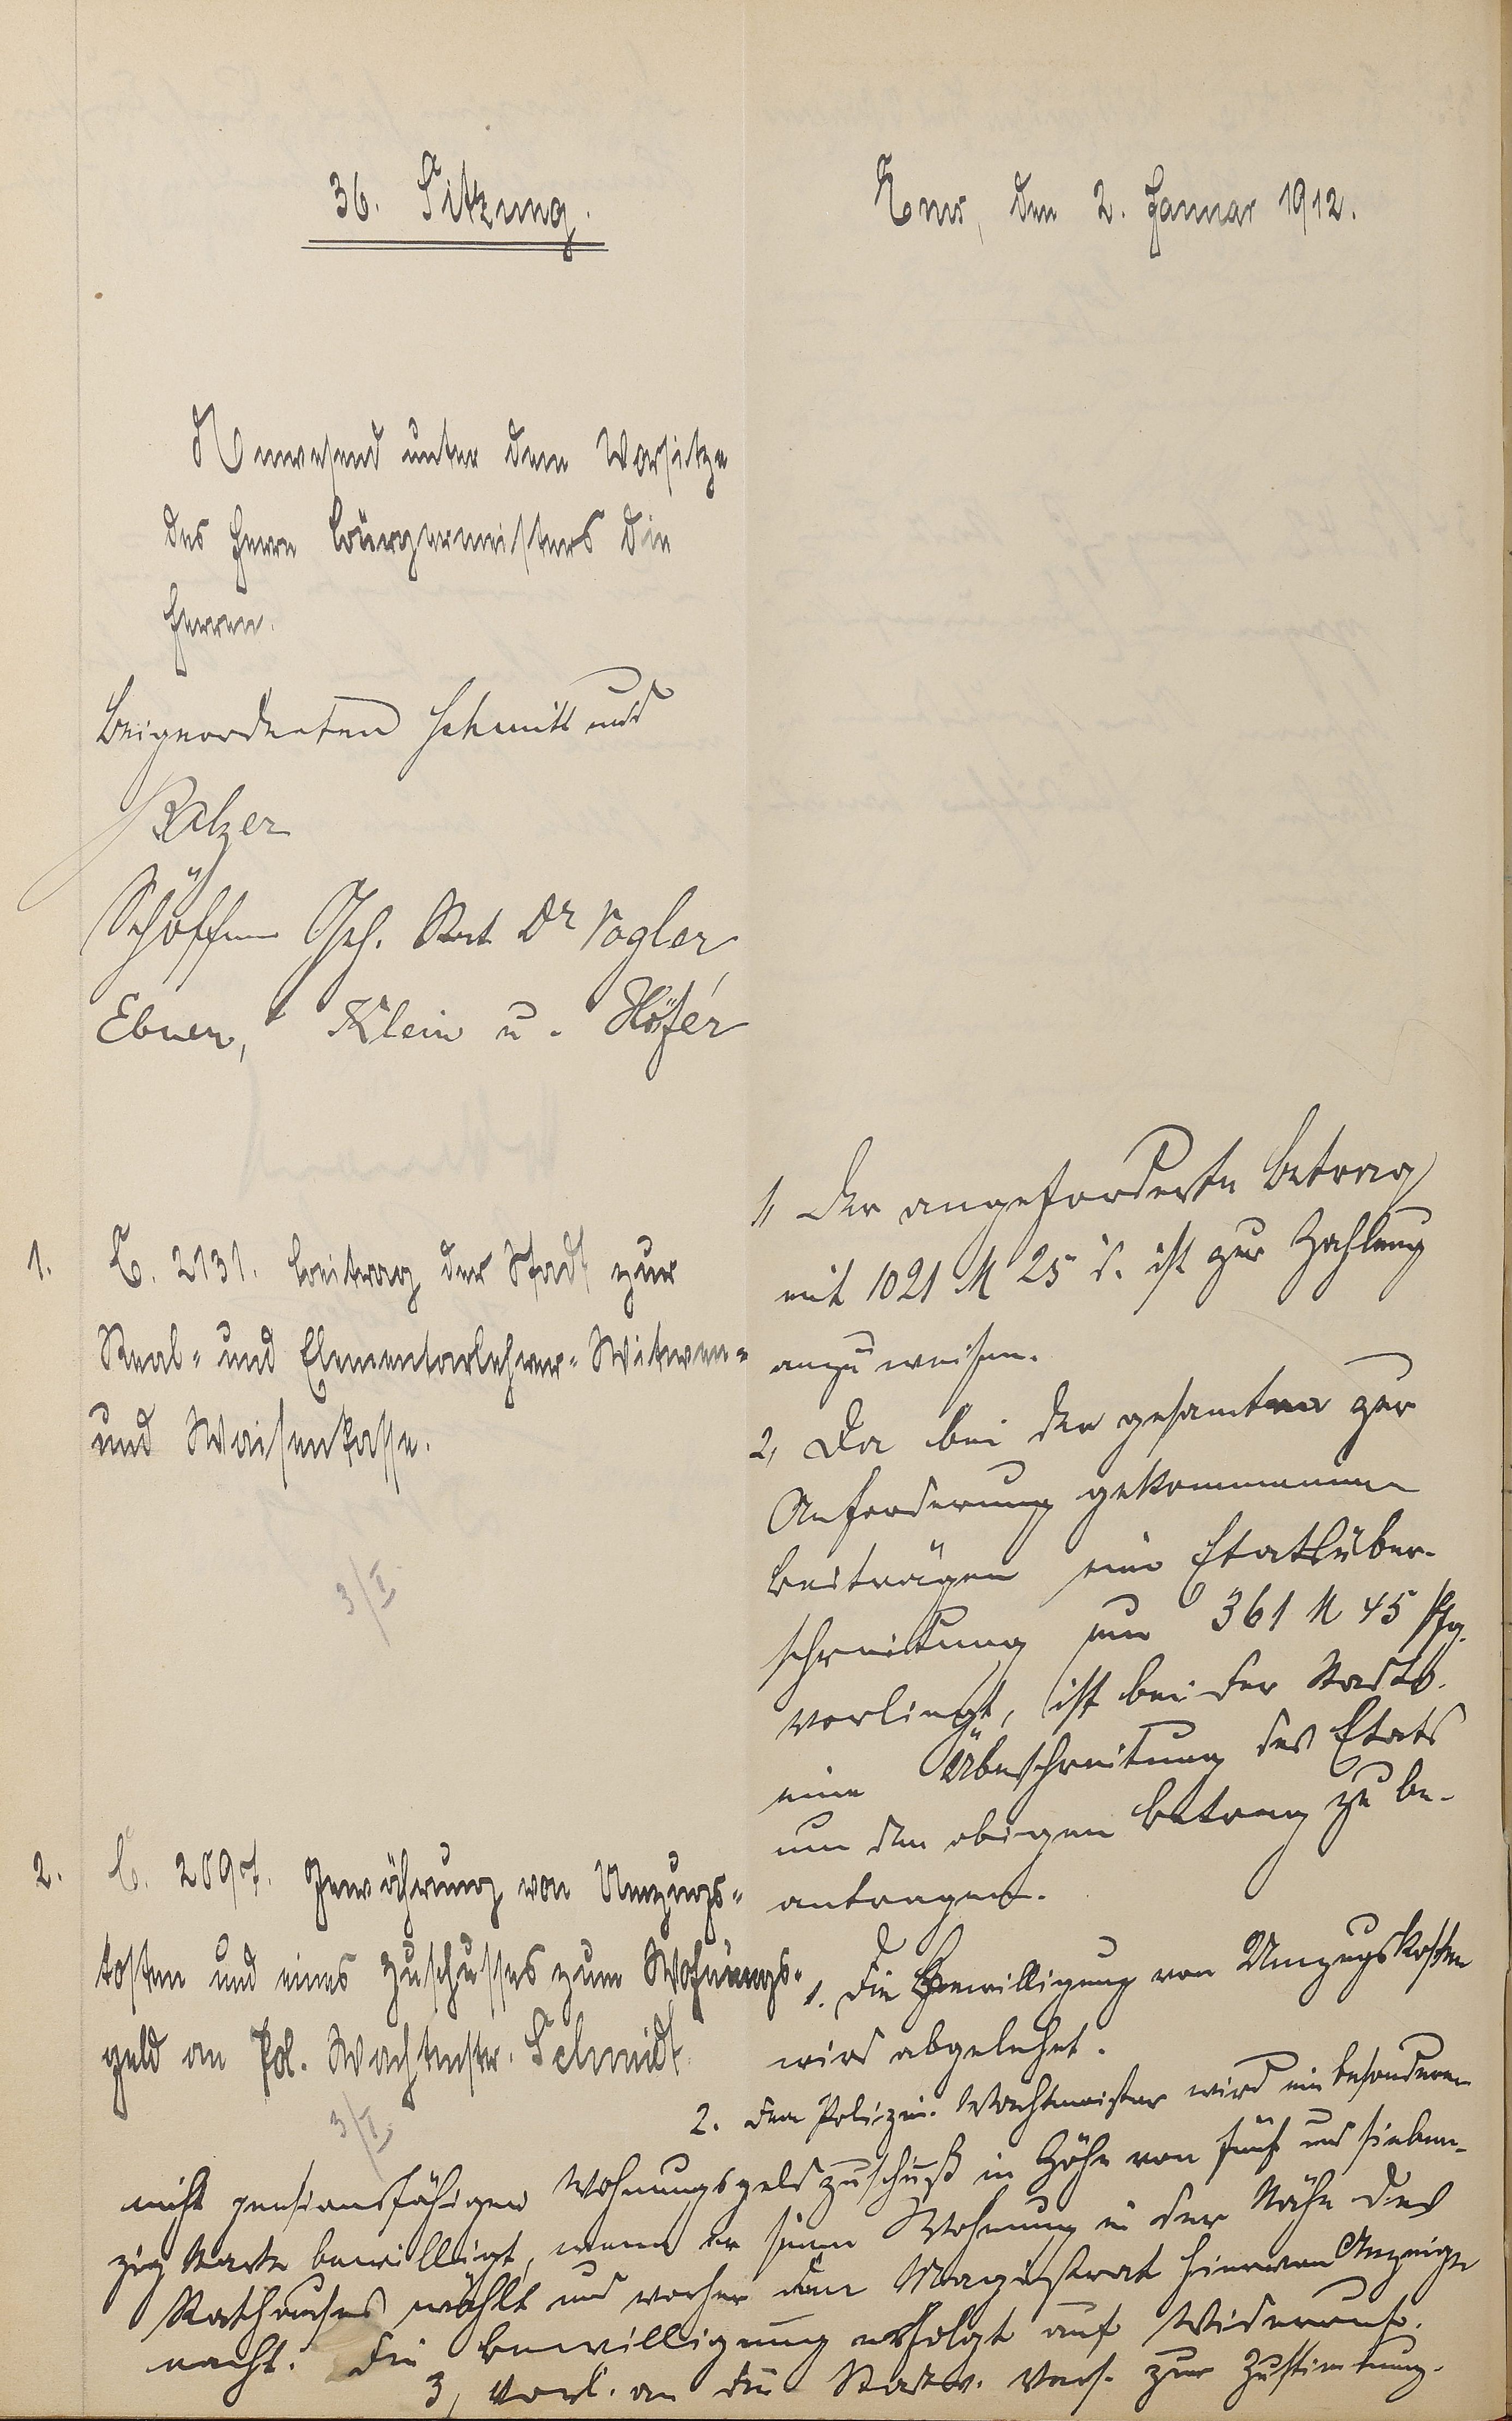 36. Sitzung.
Ems, den 2. Januar 1912.
Anwesend unter dem Vorsitze
des Herrn Bürgermeisters die
Herren.
Beigeordneten Schmitt und
Balzer
Schöffen Geh. Rat Dr Vogler,
Ebner, Klein u. Höfer
1. C. 2131. Beitrag der Stadt zur
Real- und Elementarlehrer-Witwen-
und Waisenkasse.
3/I.
1, Der angeforderte Betrag
mit 1021 M 25 d. ist zur Zahlung
anzuweisen.
2, Da bei den gesamten zur
Anforderung gekommenen
Beiträgen eine Etatsüber-
schreitung von 361 M 45 Pfg.
vorliegt, ist bei der Stadtv.
eine Überschreitung des Etats
um den obigen Betrag zu be-
antragen.
2. C. 2097. Gewährung von Umzugs-
kosten und eines Zuschusses zum Wohnungs-
geld an Pol. Wachtmstr. Schmidt.
3/I.
1. Die Bewilligung von Umzugskosten
wird abgelehnt.
2. Dem Polizei-Wachtmeister wird ein besonderer
nicht pensionsfähiger Wohnungsgeldzuschuß in Höhe von fünf und sieben-
zig Mark bewilligt, wenn er seine Wohnung in der Nähe des
Rathauses wählt und vorher dem Magistrat hiervon Anzeige
macht. Die Bewilligung erfolgt auf Widerruf.
3, Vorl. an die Stadtv. Vers. zur Zustimmung.